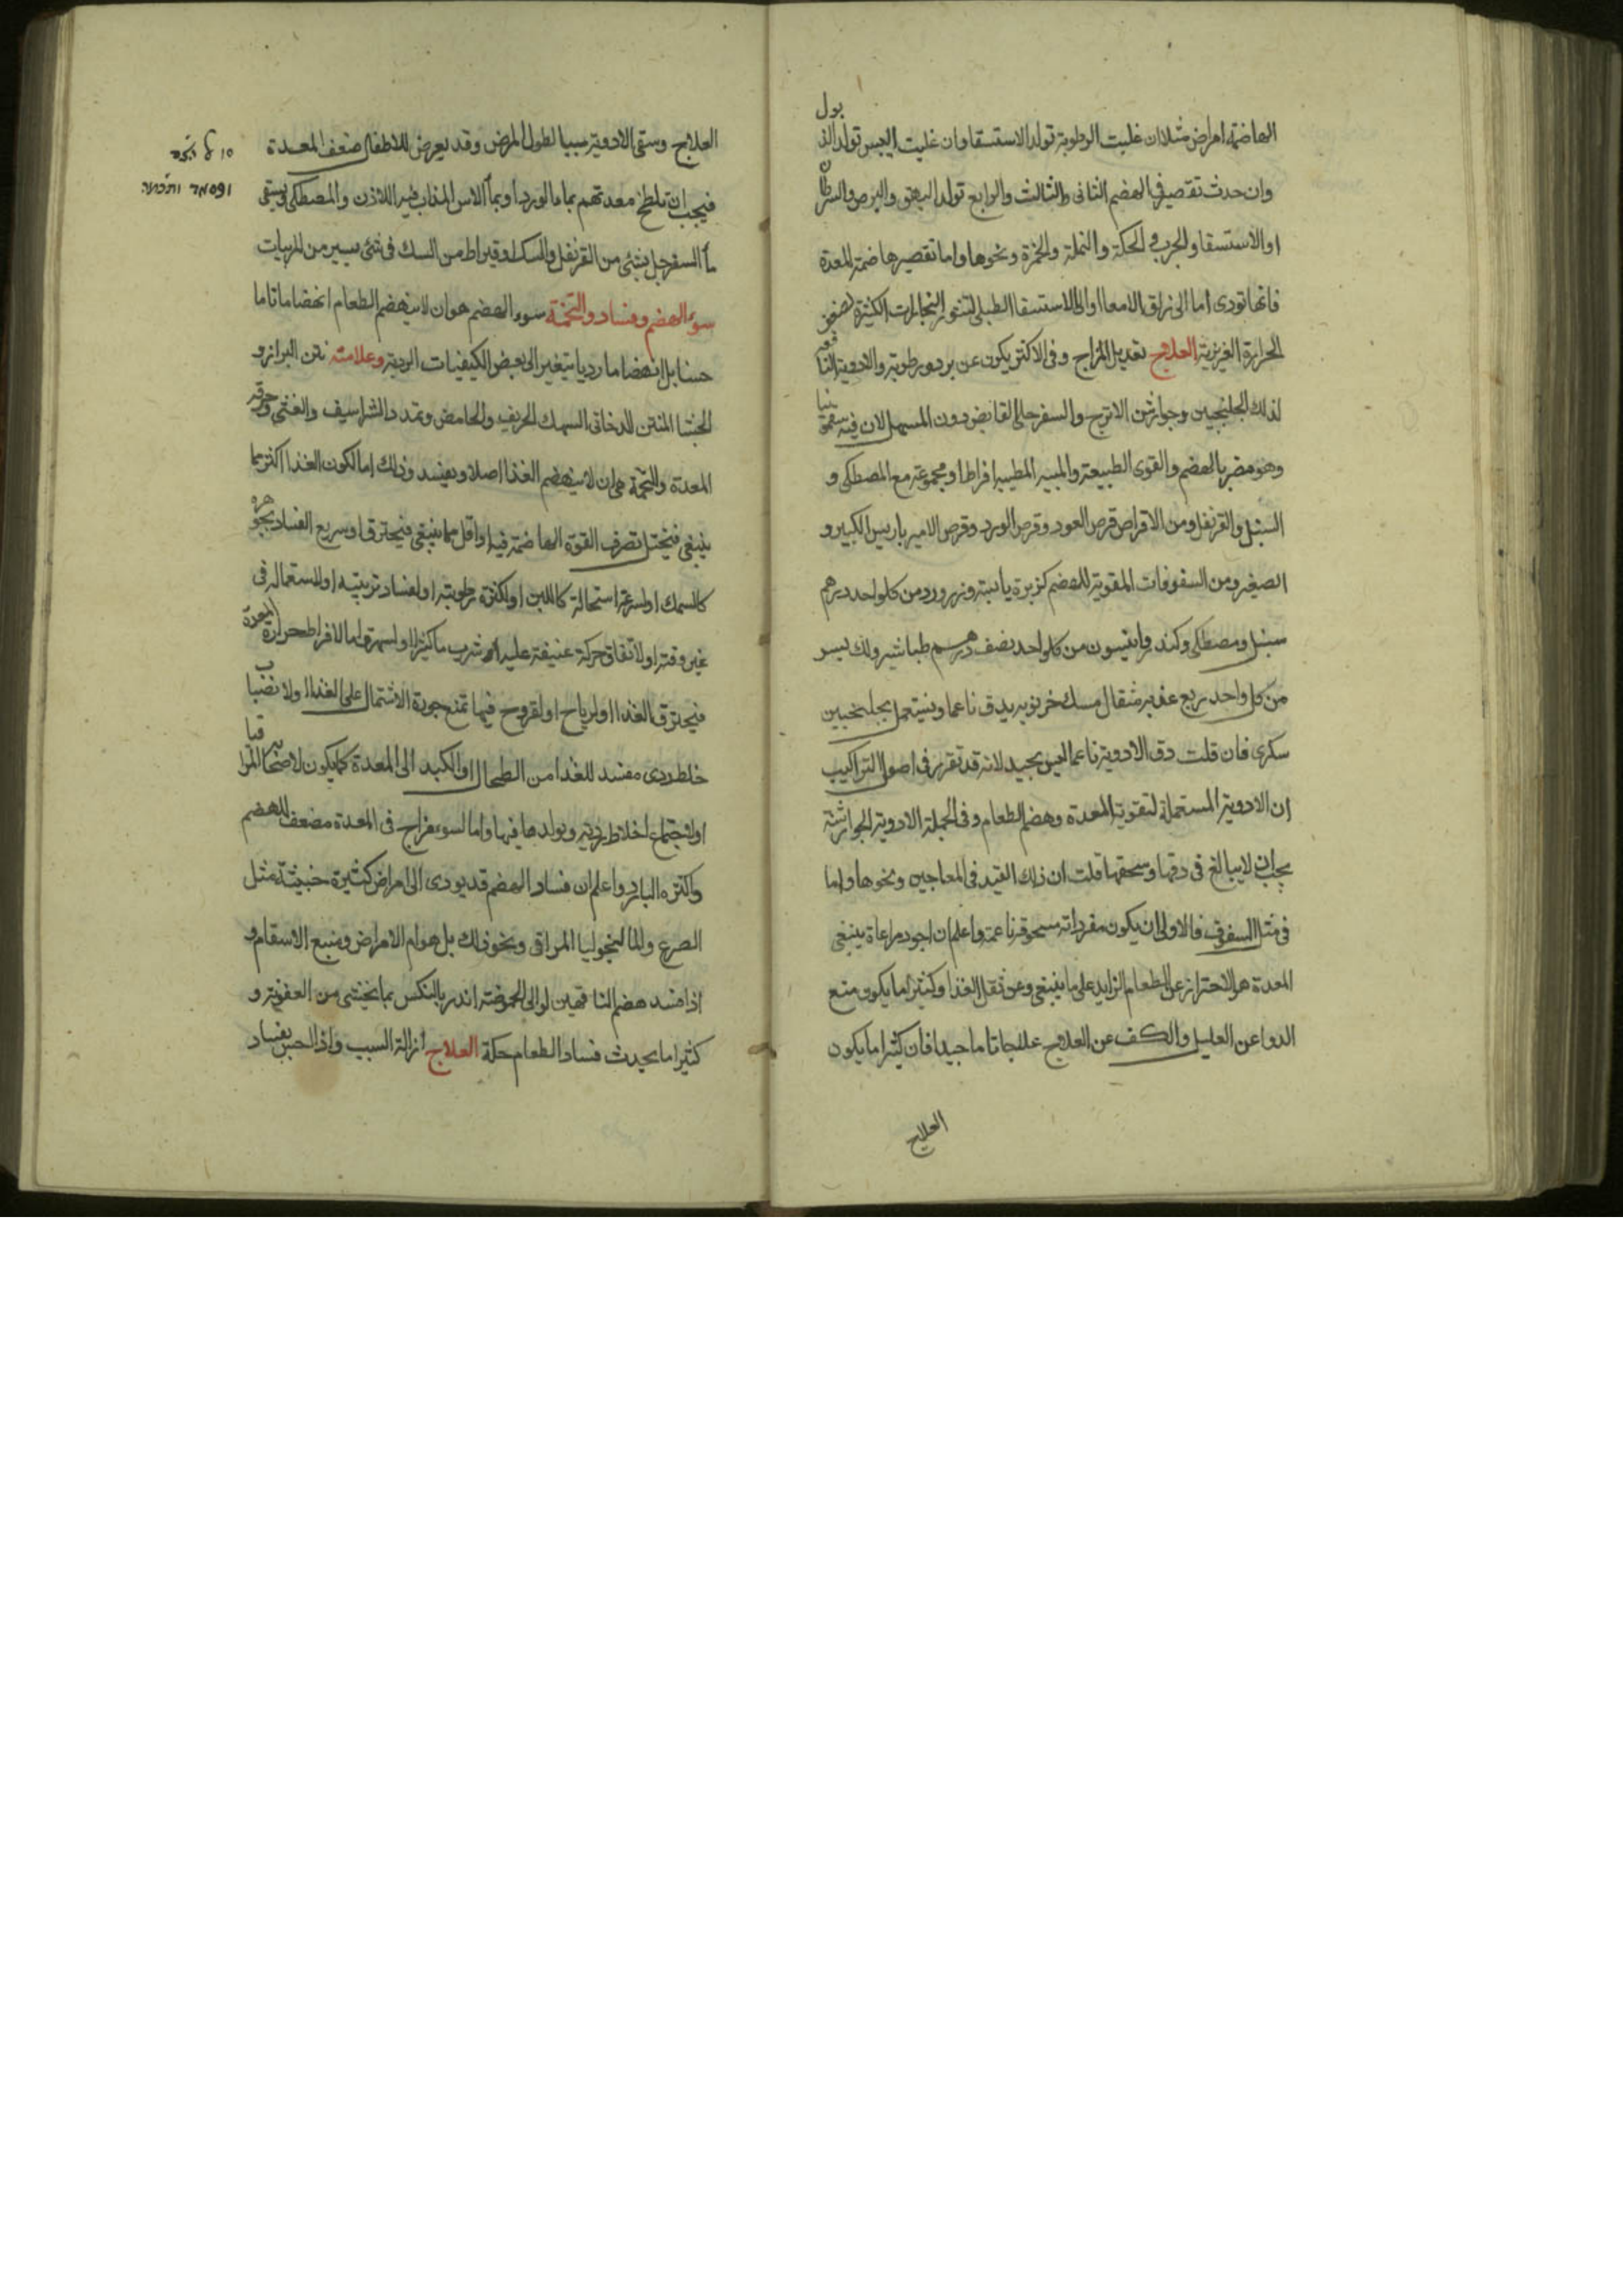 الهاضمة امراض مثلا ان غلبت الرطوبة تولد الاستسقا وان غلبت اليبس تولد الذبول
وان حدث تقصير في الهضم الثاني والثالث والرابع تولد البهق والبرص والسرطان
او الاستسقا والجرب والحكة والنملة والحمرة ونحوها واما تقصير هاضمة المعدة
فانها تودى اما الى زلق الامعا او الى الاستسقا الطبلى لتبخير البخارات الكثيرة لضعف
الحرارة الغريزية العلاج تعديل المزاج وفي الاكثر يكون عن برد ورطوبة والادوية النافعة
لذلك الجلنجبين وجوارشن الاترج والسفرجلى القابض دون المسهل لان فيه سقمونيا
وهو مضر بالهضم والقوى الطبيعة والميبه المطيبه افرادا ومجموعة مع المصطكى و
السنبل والقرنفل ومن الاقراص قرص العود وقرص الورد وقرص الامير باريس الكبير و
الصغير ومن السفوفات المقوية للهضم كزبرة يابسة وزرورد من كل واحد درهم
سنبل ومصطكى وكندر وانيسون من كل واحد نصف درهم طباشير ولك
من كل واحد ربع عنبر مثقال مسك خرنوبه يدق ناعما ويستعمل بجلنجبين
سكرى فان قلت دق الادوية ناعما ليس بجيد لانه قد تقرر في اصول التراكيب
ان الادوية المستعملة لتقوية المعدة وهضم الطعام وفي الجملة الادوية الجوارشنة
يجب ان لا يبالغ في دقها وسحقها قلت ان ذلك القيد في المعاجين ونحوها واما
في مثل السفوف فالاولى ان يكون مفرداته مسحوقة ناعمة واعلم ان اجود مراعاة ينبغى
المعدة هو الاحتراز عن الطعام الزايد على ما ينبغى وعن ثقل الغذا وكثيرا ما يكون منع
الدوا عن العليل والكف عن العلاج علاجا تاما جيدا فان كثيرا ما يكون
العلاج
العلاج وسقى الادوية سببا لطول المرض وقد يعرض للاطفال ضعف المعدة
فيجب ان تلطخ معدتهم بماء الورد او بماء الاس المذاب فيه اللاذن والمصطكى ويسقى
ماء السفرجل بشئ من القرنفل والسك او قيراط من السك في شئ يسير من المربيات
سوء الهضم وفساده والتخمة سوء الهضم هو ان لا ينهضم الطعام انهضاما تاما
حسنا بل انهضاما رديا يتغير الى بعض الكيفيات الردية وعلامته نتن البراز و
الجشا المنتن الدخانى السهك الحريف والحامض وتمدد الشراسيف والغثى وحرقة
المعدة والتخمة هى ان لا ينهضم الغذا اصلا ويفسد وذلك اما لكون الغذا اكثر مما
ينبغى فيختل تصرف القوة الهاضمة فيه او اقل مما ينبغى فيحترق او سريع الفساد بجوهره
كالسمك او لسرعة استحالة كاللبن او لكثرة رطوبته او لفساد ترتيبه او لاستعماله في
غير وقته او لاتفاق حركة عنيفة عليه او شرب ماء كثيرا او لسهر واما لافراط حرارة المعدة
فيحترق الغذا او لرياح او لقروح فيها تمنع جودة الاشتمال على الغذا او لانصباب
خلط ردى مفسد للغذا من الطحال او الكبد الى المعدة كما يكون لاصحاب المراقيا
او لاجتماع اخلاط ردية وتولدها فيها واما لسوء مزاج في المعدة مضعف للهضم
واكثره البارد واعلم ان فساد الهضم قد يودى الى امراض كثيرة خبيثة مثل
الصرع والمالنخوليا المراقى ونحو ذلك بل هو ام الامراض ومنبع الاسقام و
اذا فسد هضم الناقهين لو الى الحموضة انذر بالنكس بما يخشى من العفونة و
كثيرا ما يحدث فساد الطعام حكة العلاج ازالة السبب واذا احس بفساد